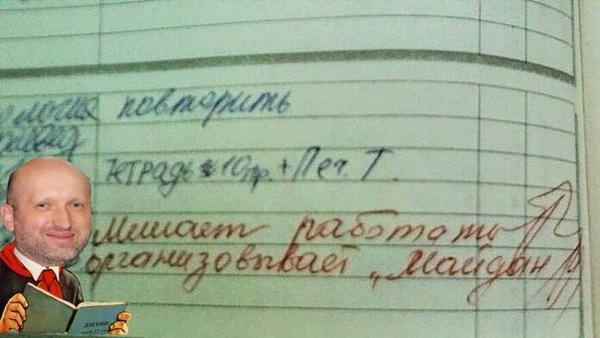 повторить
тетрадь 10пр. + Печ. Т.
Мешает работать
организовывает „Майдан"
ДНЕВНИК